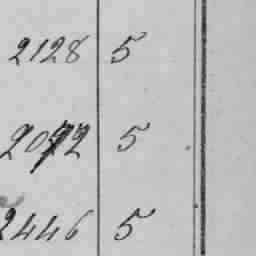 2128 5
2072 5
2446 5